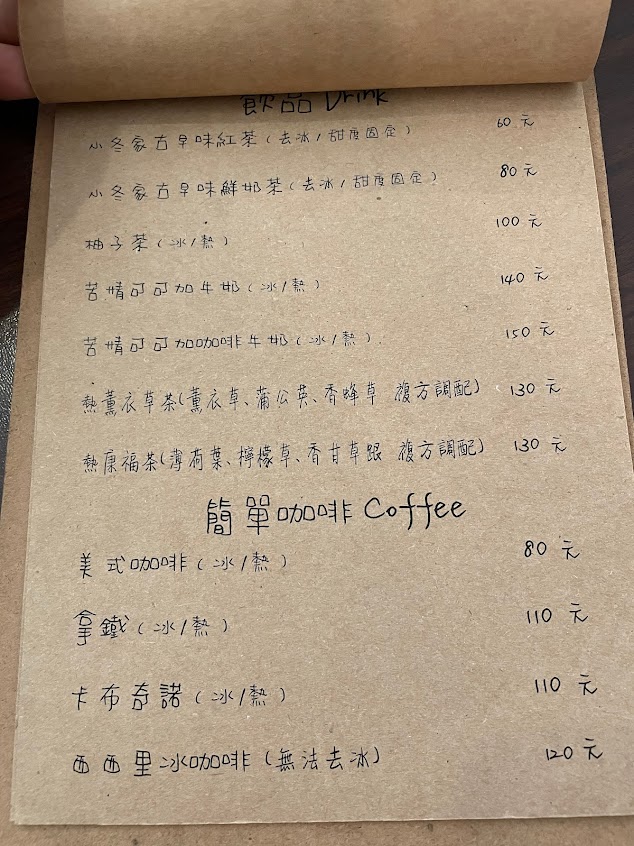 飲品 Drink
小冬家古早味紅茶(去冰/甜度固定) 60元
小冬家古早味鮮奶茶(去冰/甜度固定) 80元
柚子茶(冰/熱) 100元
苦情可可加牛奶(冰/熱) 140元
苦情可可加咖啡牛奶(冰/熱) 150元
熱薰衣草茶(薰衣草、蒲公英、香蜂草 複方調配) 130元
熱康福茶(薄荷葉、檸檬草、香甘草跟 複方調配) 130元
簡單咖啡 Coffee
美式咖啡(冰/熱) 80元
拿鐵(冰/熱) 110元
卡布奇諾(冰/熱) 110元
西西里冰咖啡(無法去冰) 120元